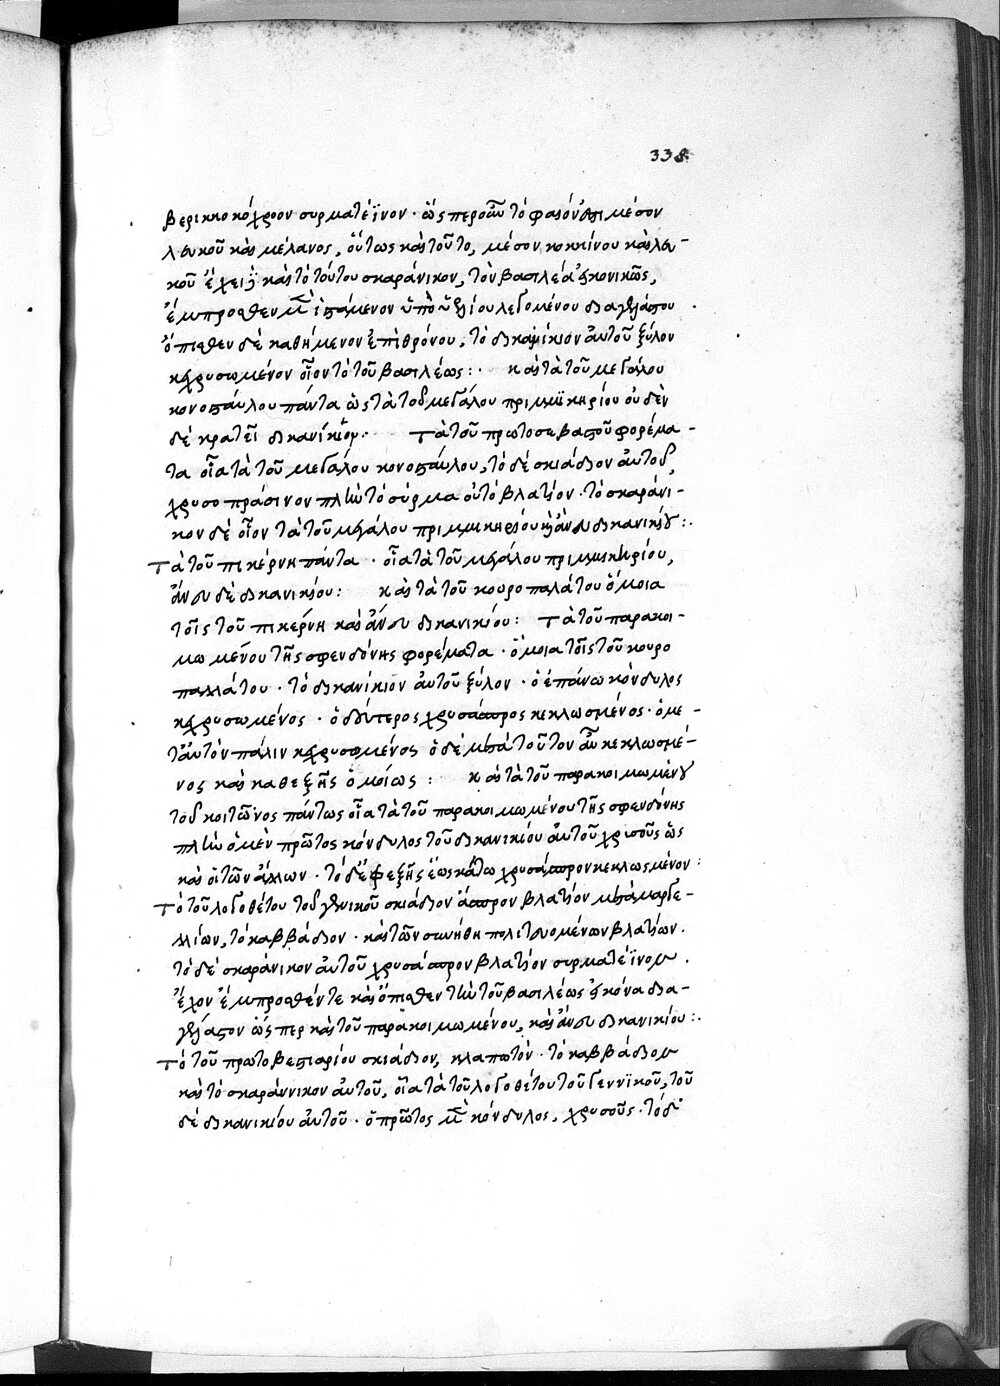 338
βερικκοκόχροον συρματέϊνον · ὥσπερ οὖν τὸ φαιόν ἐστι μέσον
λευκοῦ καὶ μέλανος, οὕτως καὶ τοῦτο, μέσον κοκκίνου καὶ λευ-
κοῦ ἔχει· καὶ τὸ τούτου σκαράνικον, τὸν βασιλέα εἰκονικῶς,
ἔμπροσθεν μὲν ἱστάμενον ὑπὸ ὑελίου λεγομένου διαγελάστου
ὄπισθεν δὲ καθήμενον ἐπὶ θρόνου, τὸ δικανίκιον αὐτοῦ ξύλον
κεχρυσωμένον οἷον τὸ τοῦ βασιλέως : · καὶ τὰ τοῦ μεγάλου
κονοσταύλου πάντα ὡς τὰ τοῦ μεγάλου πριμμϊκηρίου οὐδὲν
δὲ κρατεῖ δικανίκιον · Τὰ τοῦ πρωτοσεβαστοῦ φορέμα-
τα οἷα τὰ τοῦ μεγάλου κονοσταύλου, τὸ δὲ σκιάδιον αὐτοῦ,
χρυσοπράσινον πλὴν τὸ σύρμα οὐ τὸ βλατίον · τὸ σκαράνι-
κον δὲ οἷον τὰ τοῦ μεγάλου πριμμικηρίου καὶ ἄνευ δικανικίου :.
Τὰ τοῦ πικέρνη πάντα · οἷα τὰ τοῦ μεγάλου πριμμικηρίου,
ἄνευ δὲ δικανικίου : καὶ τὰ τοῦ κουροπαλάτου ὅμοια
τοῖς τοῦ πικέρνη καὶ ἄνευ δικανικίου : Τὰ τοῦ παρακοι-
μωμένου τῆς σφενδόνης φορέματα · ὅμοια τοῖς τοῦ κουρο
παλλάτου · τὸ δικανίκιον αὐτοῦ ξύλον · ὁ ἐπάνω κόνδυλος
κεχρυσωμένος · ὁ δεύτερος χρυσάσπρος κεκλωσμένος · ὁ με-
τ' αὐτὸν πάλιν κεχρυσωμένος ὁ δὲ μετὰ τοῦτον αὖ κεκλωσμέ-
νος καὶ καθεξῆς ὁμοίως : καὶ τὰ τοῦ παρακοιμωμένου
τοῦ κοιτῶνος πάντως οἷα τὰ τοῦ παρακοιμωμένου τῆς σφενδόνης
πλὴν ὁ μὲν πρῶτος κόνδυλος τοῦ δικανικίου αὐτοῦ χρυσοῦς ὡς
καὶ οἱ τῶν ἄλλων · τὸ δὲ ἐφεξῆς ἕως κάτω χρυσάσπρον κεκλωσμένον :
Τὸ τοῦ λογοθέτου τοῦ γενικοῦ σκιάδιον ἄσπρον βλατίον μετὰ μαργε-
λλίων, τὸ καββάδιον · καὶ τῶν συνήθη πολιτευομένων βλατίων.
τὸ δὲ σκαράνικον αὐτοῦ χρυσάσπρον βλατίον συρματέϊνον .
ἔχον ἔμπροσθέν τε καὶ ὄπισθεν τὴν τοῦ βασιλέως εἰκόνα δια-
γελάστον ὥσπερ καὶ τοῦ παρακοιμωμένου, καὶ ἄνευ δικανικίου :.
Τὸ τοῦ πρωτοβεστιαρίου σκιάδιον, κλαπωτόν · τὸ καββάδιον
καὶ τὸ σκαράννικον αὐτοῦ, οἷα τὰ τοῦ λογοθέτου τοῦ γεννϊκοῦ, τοῦ
δὲ δικανικίου αὐτοῦ · ὁ πρῶτος μὲν κόνδυλος, χρυσοῦς · τὸ δ'